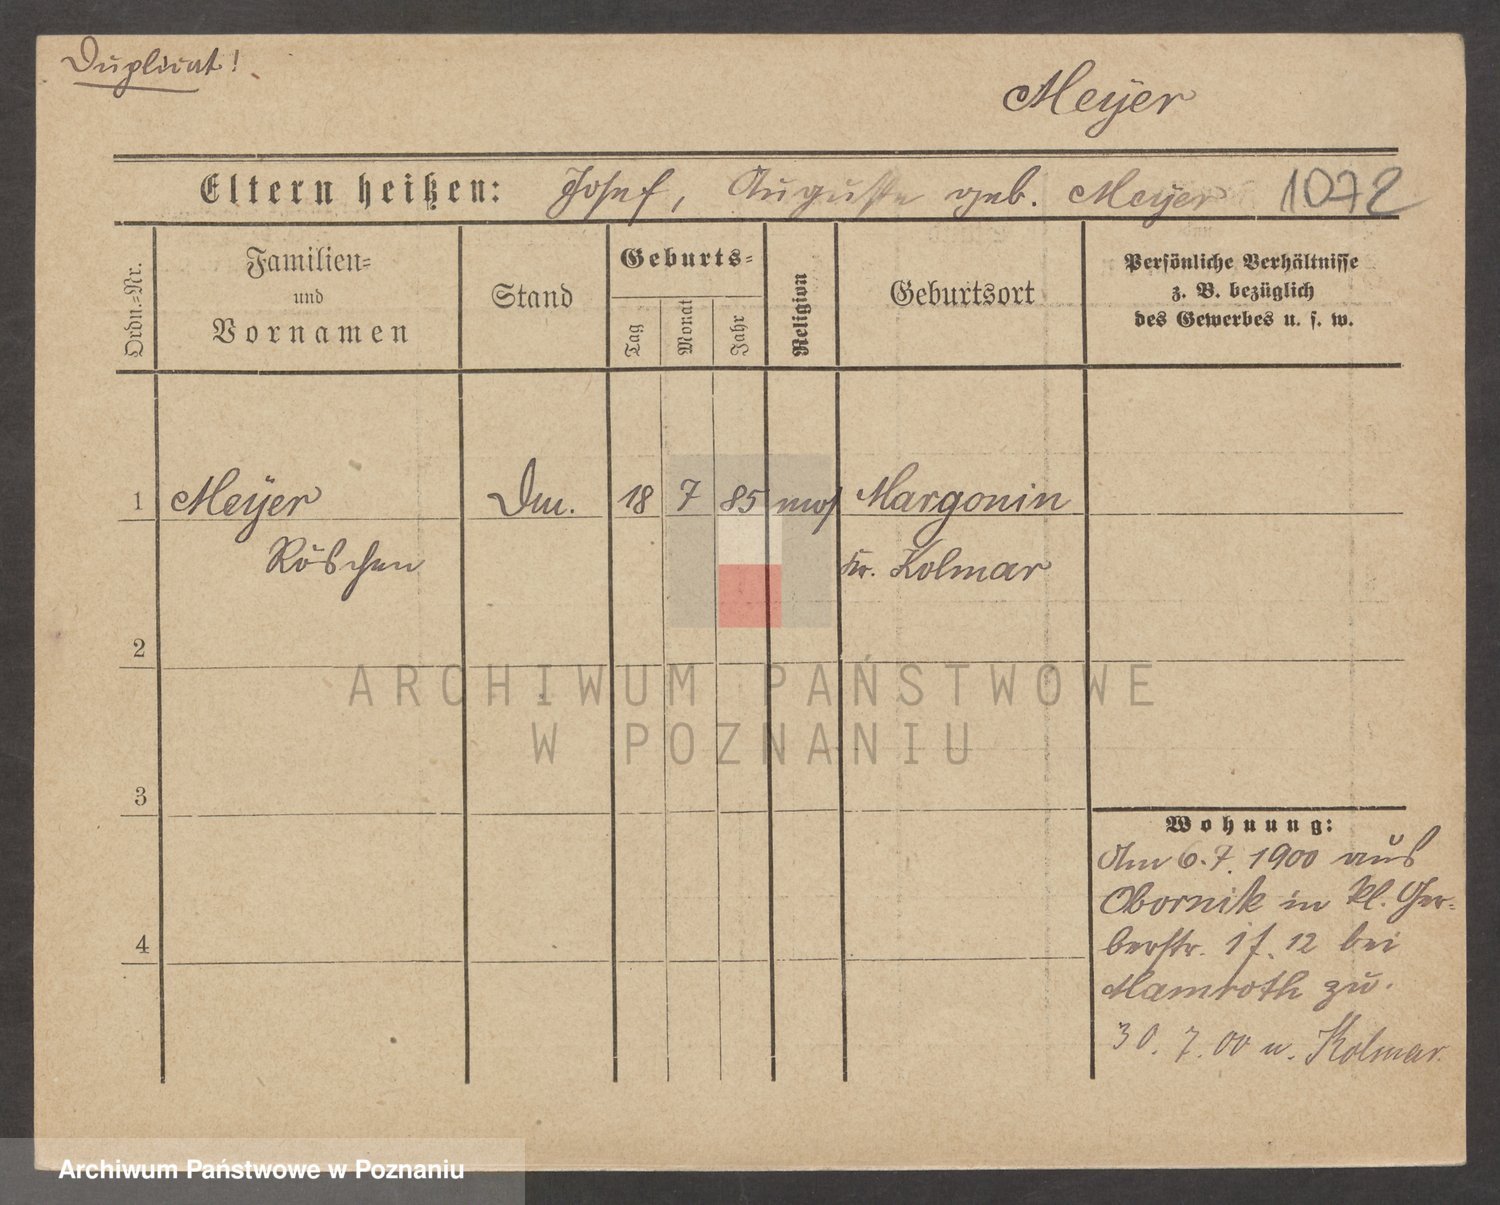 Duplicat!
Meÿer
Eltern heißen: Josef, Auguste geb. Meyer 1072
Ordn.=Nr.
Familien=
und
Vornamen
Stand
Geburts=
Tag
Monat
Jahr
Religion
Geburtsort
Persönliche Verhältnisse
z. B. bezüglich
des Gewerbes u. s. w.
1 Meÿer Dm. 18 7 85 mos Margonin
Röschen Kr. Kolmar
2
3
4
Wohnung:
Am 6.7.1900 aus
Obornik in kl. Ger=
berstr. 7f. 12 bei
Mamroth zu.
30.7.00 n. Kolmar.
ARCHIWUM PAŃSTWOWE
W POZNANIU
Archiwum Państwowe w Poznaniu